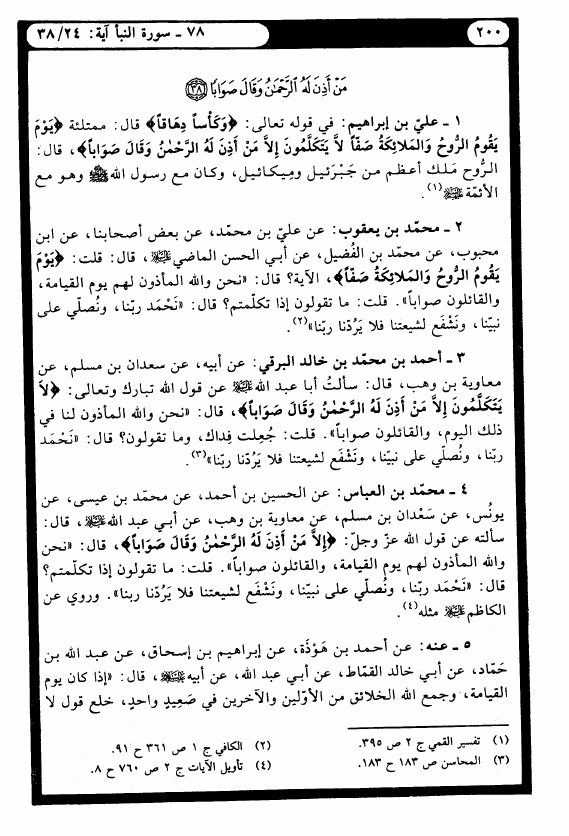 ٢٠٠
٧٨ ـ سورة النبأ آية: ٣٨/٢٤
مَنْ أَذِنَ لَهُ الرَّحْمَنُ وَقَالَ صَوَابًا ﴿٣٨﴾
١ ـ عليّ بن إبراهيم: في قوله تعالى: ﴿وَكَأْساً دِهَاقاً﴾ قال: ممتلئة ﴿يَوْمَ
يَقُومُ الرُّوحُ وَالمَلائِكَةُ صَفّاً لاَّ يَتَكَلَّمُونَ إِلاَّ مَنْ أَذِنَ لَهُ الرَّحْمٰنُ وَقَالَ صَوَاباً﴾، قال:
الرُّوح مَلك أعظم من جَبْرَئيل وميكائيل، وكان مع رسول الله ﷺ وهو مع
الأئمّة عليهم السلام(١).
٢ ـ محمّد بن يعقوب: عن عليّ بن محمّد، عن بعض أصحابنا، عن ابن
محبوب، عن محمّد بن الفُضيل، عن أبي الحسن الماضي عليه السلام، قال: قلت: ﴿يَوْمَ
يَقُومُ الرُّوحُ وَالمَلائِكَةُ صَفّاً﴾، الآية؟ قال: «نحن والله المأذون لهم يوم القيامة،
والقائلون صواباً». قلت: ما تقولون إذا تكلّمتم؟ قال: «نَحْمَد ربّنا، ونُصلّي على
نبيّنا، ونَشْفَع لشيعتنا فلا يَرُدّنا ربّنا»(٢).
٣ ـ أحمد بن محمّد بن خالد البرقي: عن أبيه، عن سعدان بن مسلم، عن
معاوية بن وهب، قال: سألتُ أبا عبد الله عليه السلام عن قول الله تبارك وتعالى: ﴿لاَ
يَتَكَلَّمُونَ إِلاَّ مَنْ أَذِنَ لَهُ الرَّحْمٰنُ وَقَالَ صَوَاباً﴾، قال: «نحن والله المأذون لنا في
ذلك اليوم، والقائلون صواباً». قلت: جُعلت فِداك، وما تقولون؟ قال: «نَحْمَد
ربّنا، ونُصلّي على نبيّنا، ونَشْفَع لشيعتنا فلا يَرُدّنا ربّنا»(٣).
٤ ـ محمّد بن العباس: عن الحسين بن أحمد، عن محمّد بن عيسى، عن
يونُس، عن سَعْدان بن مسلم، عن معاوية بن وهب، عن أبي عبد الله عليه السلام، قال:
سألته عن قول الله عزّ وجلّ: ﴿إِلاَّ مَنْ أَذِنَ لَهُ الرَّحْمٰنُ وَقَالَ صَوَاباً﴾، قال: «نحن
والله المأذون لهم يوم القيامة، والقائلون صواباً». قلت: ما تقولون إذا تكلّمتم؟
قال: «نَحْمَد ربّنا، ونُصلّي على نبيّنا، ونَشْفَع لشيعتنا فلا يَرُدّنا ربنا». وروي عن
الكاظم عليه السلام مثله(٤).
٥ ـ عنه: عن أحمد بن هَوْذَة، عن إبراهيم بن إسحاق، عن عبد الله بن
حَمّاد، عن أبي خالد القمّاط، عن أبي عبد الله، عن أبيه عليه السلام، قال: «إذا كان يوم
القيامة، وجمع الله الخلائق من الأوّلين والآخرين في صَعِيدٍ واحدٍ، خلع قول لا
(١) تفسير القمي ج ٢ ص ٣٩٥.
(٢) الكافي ج ١ ص ٣٦١ ح ٩١.
(٣) المحاسن ص ١٨٣ ح ١٨٣.
(٤) تأويل الآيات ج ٢ ص ٧٦٠ ح ٨.